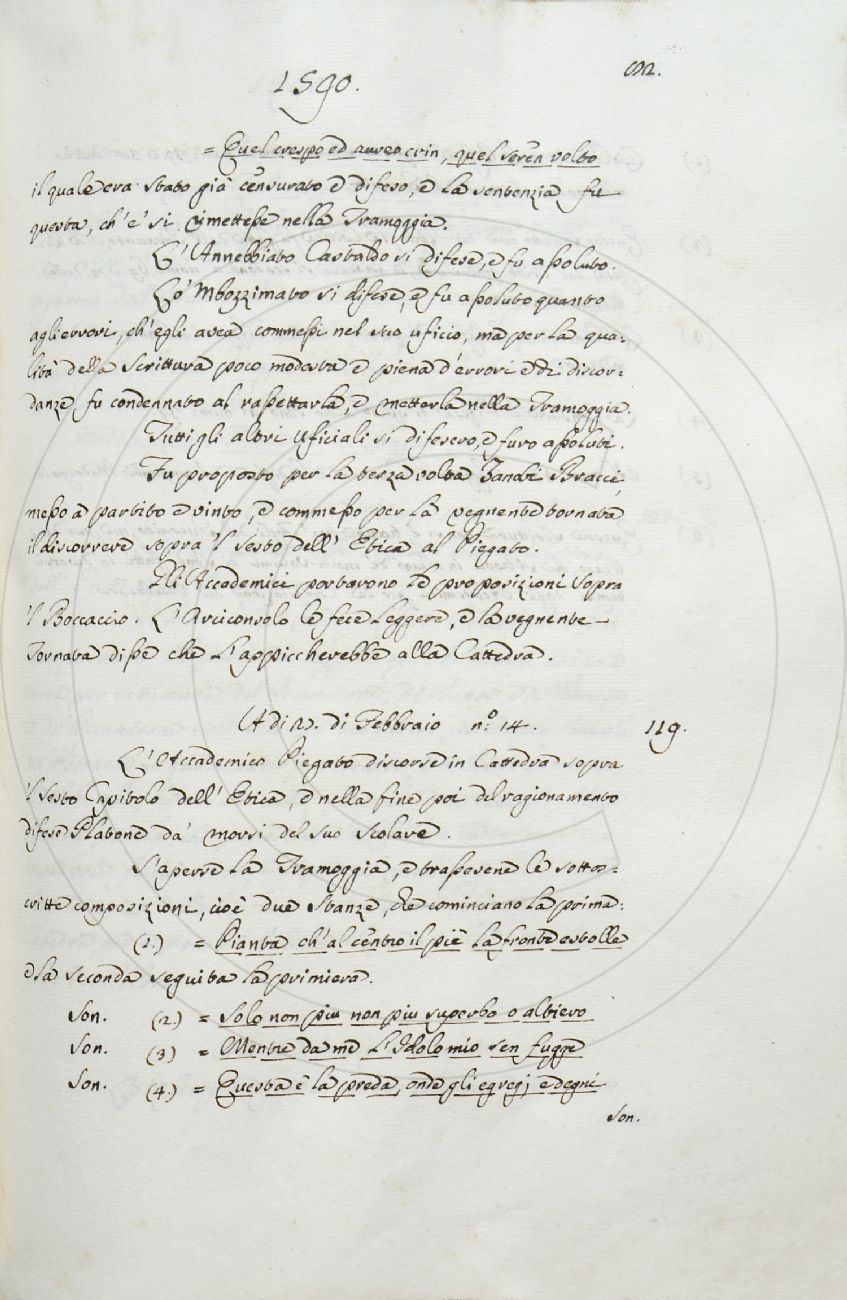 1590.
= Quel crespo ed aureo crin, quel seren volto
il quale era stato già censurato e difeso, e la sentenzia fu
questa, ch'e' si rimettesse nella Tramoggia.
L'Annebbiato Castaldo si difese, e fu assoluto.
Lo 'Mbozzimato si difese, e fu assoluto quanto
agli errori, ch'egli avea commessi nel suo uficio, ma per la qua:
lità della Scrittura poco modesta e piena d'errori e di discor:
danze fu condennato al rassettarla, e metterla nella Tramoggia.
Tutti gli altri Uficiali si difesero, e furo assoluti.
Fu proposto per la terza volta Zanobi Bracci,
messo a partito e vinto, e commesso per la vegnente tornata
il discorrere sopra 'l sesto dell'Etica al Piegato.
Gli Accademici portarono le proposizioni sopra
'l Boccaccio. L'Arciconsolo le fece leggere, e la vegnente -
Tornata disse che l'appiccherebbe alla Cattedra.
A di 20. di Febbraio n.o 14. 119.
L'Accademico Piegato discorse in Cattedra sopra
'l sesto Capitolo dell'Etica, e nella fine poi del ragionamento
difese Platone da' morsi del suo Scolare.
S'aperse la Tramoggia, e trassesene le sottos:
critte composizioni, cioè due Stanze, che cominciano la prima:
(1.) = Pianta ch'al centro il piè la fronte estolle
e la seconda seguita la primiera.
Son. (2) = Solo non più non più superbo o altiero
Son. (3) = Mentre da me l'Idolo mio sen fugge
Son. (4.) = Questa è la preda, onde gli egregj, e degni
Son.